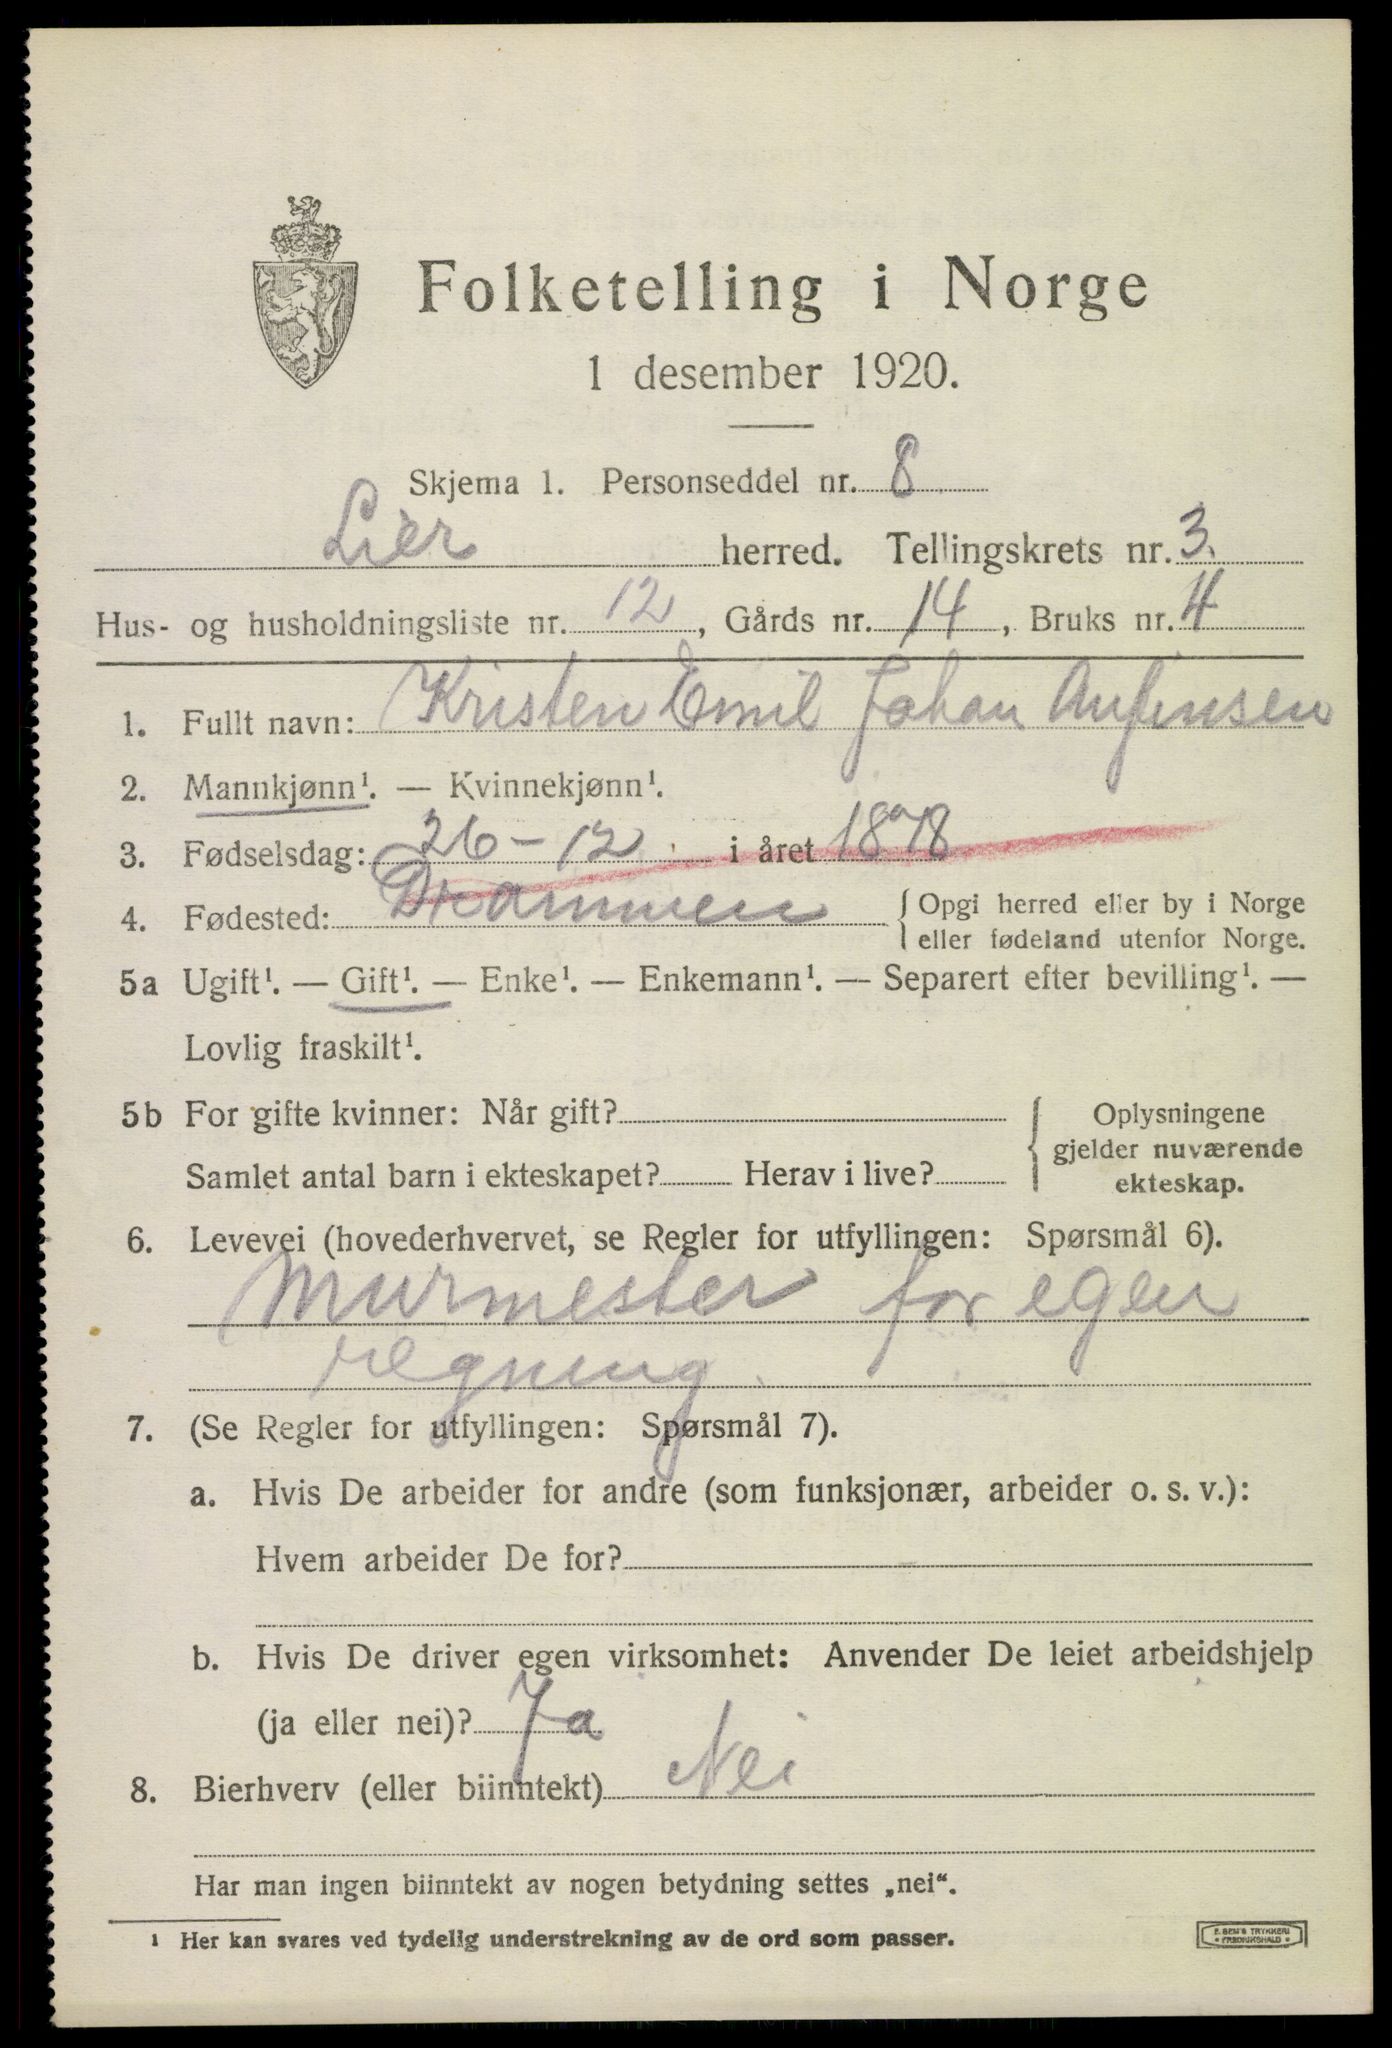 Folketelling i Norge
1 desember 1920.
Skjema 1. Personseddel nr. 8
Lier herred. Tellingskrets nr. 3.
Hus- og husholdningsliste nr. 12, Gårds nr. 14, Bruks nr. 4
1. Fullt navn: Kristen Emil Johan
2. Mannkjønn¹. — Kvinnekjønn¹.
3. Fødselsdag: 26-12 i året 1878
4. Fødested: Drammen { Opgi herred eller by i Norge
eller fødeland utenfor Norge.
5a Ugift¹. — Gift¹. — Enke¹. — Enkemann¹. — Separert efter bevilling¹. —
Lovlig fraskilt¹.
5b For gifte kvinner: Når gift?
Samlet antal barn i ekteskapet? Herav i live?
{ Oplysningene
gjelder nuværende
ekteskap.
6. Levevei (hovederhvervet, se Regler for utfyllingen: Spørsmål 6).
Murmester for egen
regning.
7. (Se Regler for utfyllingen: Spørsmål 7).
a. Hvis De arbeider for andre (som funksjonær, arbeider o. s. v.):
Hvem arbeider De for?
b. Hvis De driver egen virksomhet: Anvender De leiet arbeidshjelp
(ja eller nei)? Ja
8. Bierhverv (eller biinntekt) Nei
Har man ingen biinntekt av nogen betydning settes „nei“.
¹ Her kan svares ved tydelig understrekning av de ord som passer.
E. SEM'S TRYKKERI
• FREDRIKSHALD •